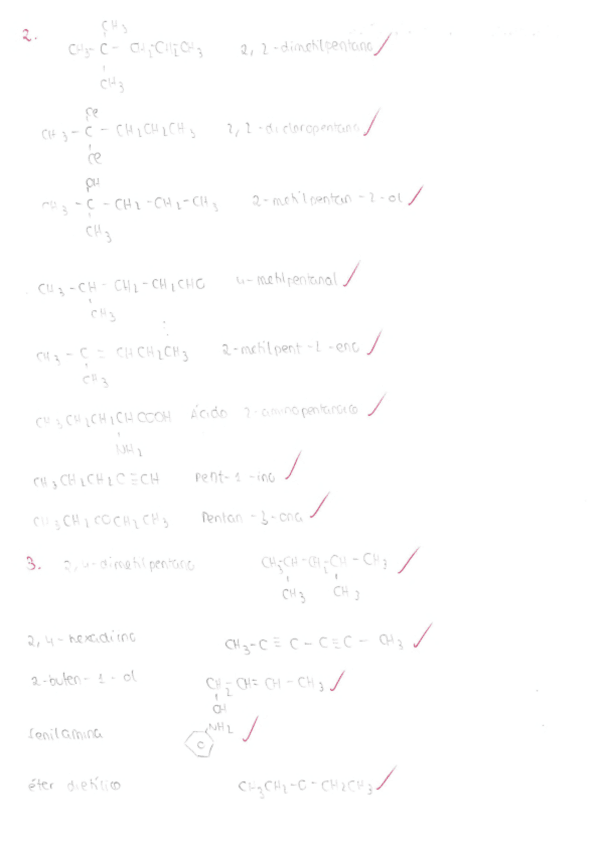 CH3
2. CH3 - C - CH2-CH2-CH3 2,2-dimetilpentano
CH3
Cl
CH3 - C - CH2CH2CH3 2,2-dicloropentano
Cl
OH
CH3 - C - CH2 - CH2 - CH3 2-metilpentan-2-ol
CH3
CH3 - CH - CH2 - CH2CHO 4-metilpentanal
CH3
CH3 - C = CHCH2CH3 2-metilpent-2-eno
CH3
CH3CH2CH2CHCOOH Ácido 2-aminopentanoico
NH2
CH3CH2CH2C≡CH Pent-1-ino
CH3CH2COCH2CH3 Pentan-3-ona
3. 2,4-dimetilpentano CH3CH-CH2-CH-CH3
CH3 CH3
2,4-hexadiino CH3-C≡C-C≡C-CH3
2-buten-1-ol CH2-CH=CH-CH3
OH
fenilamina NH2
éter dietílico CH3CH2-O-CH2CH3